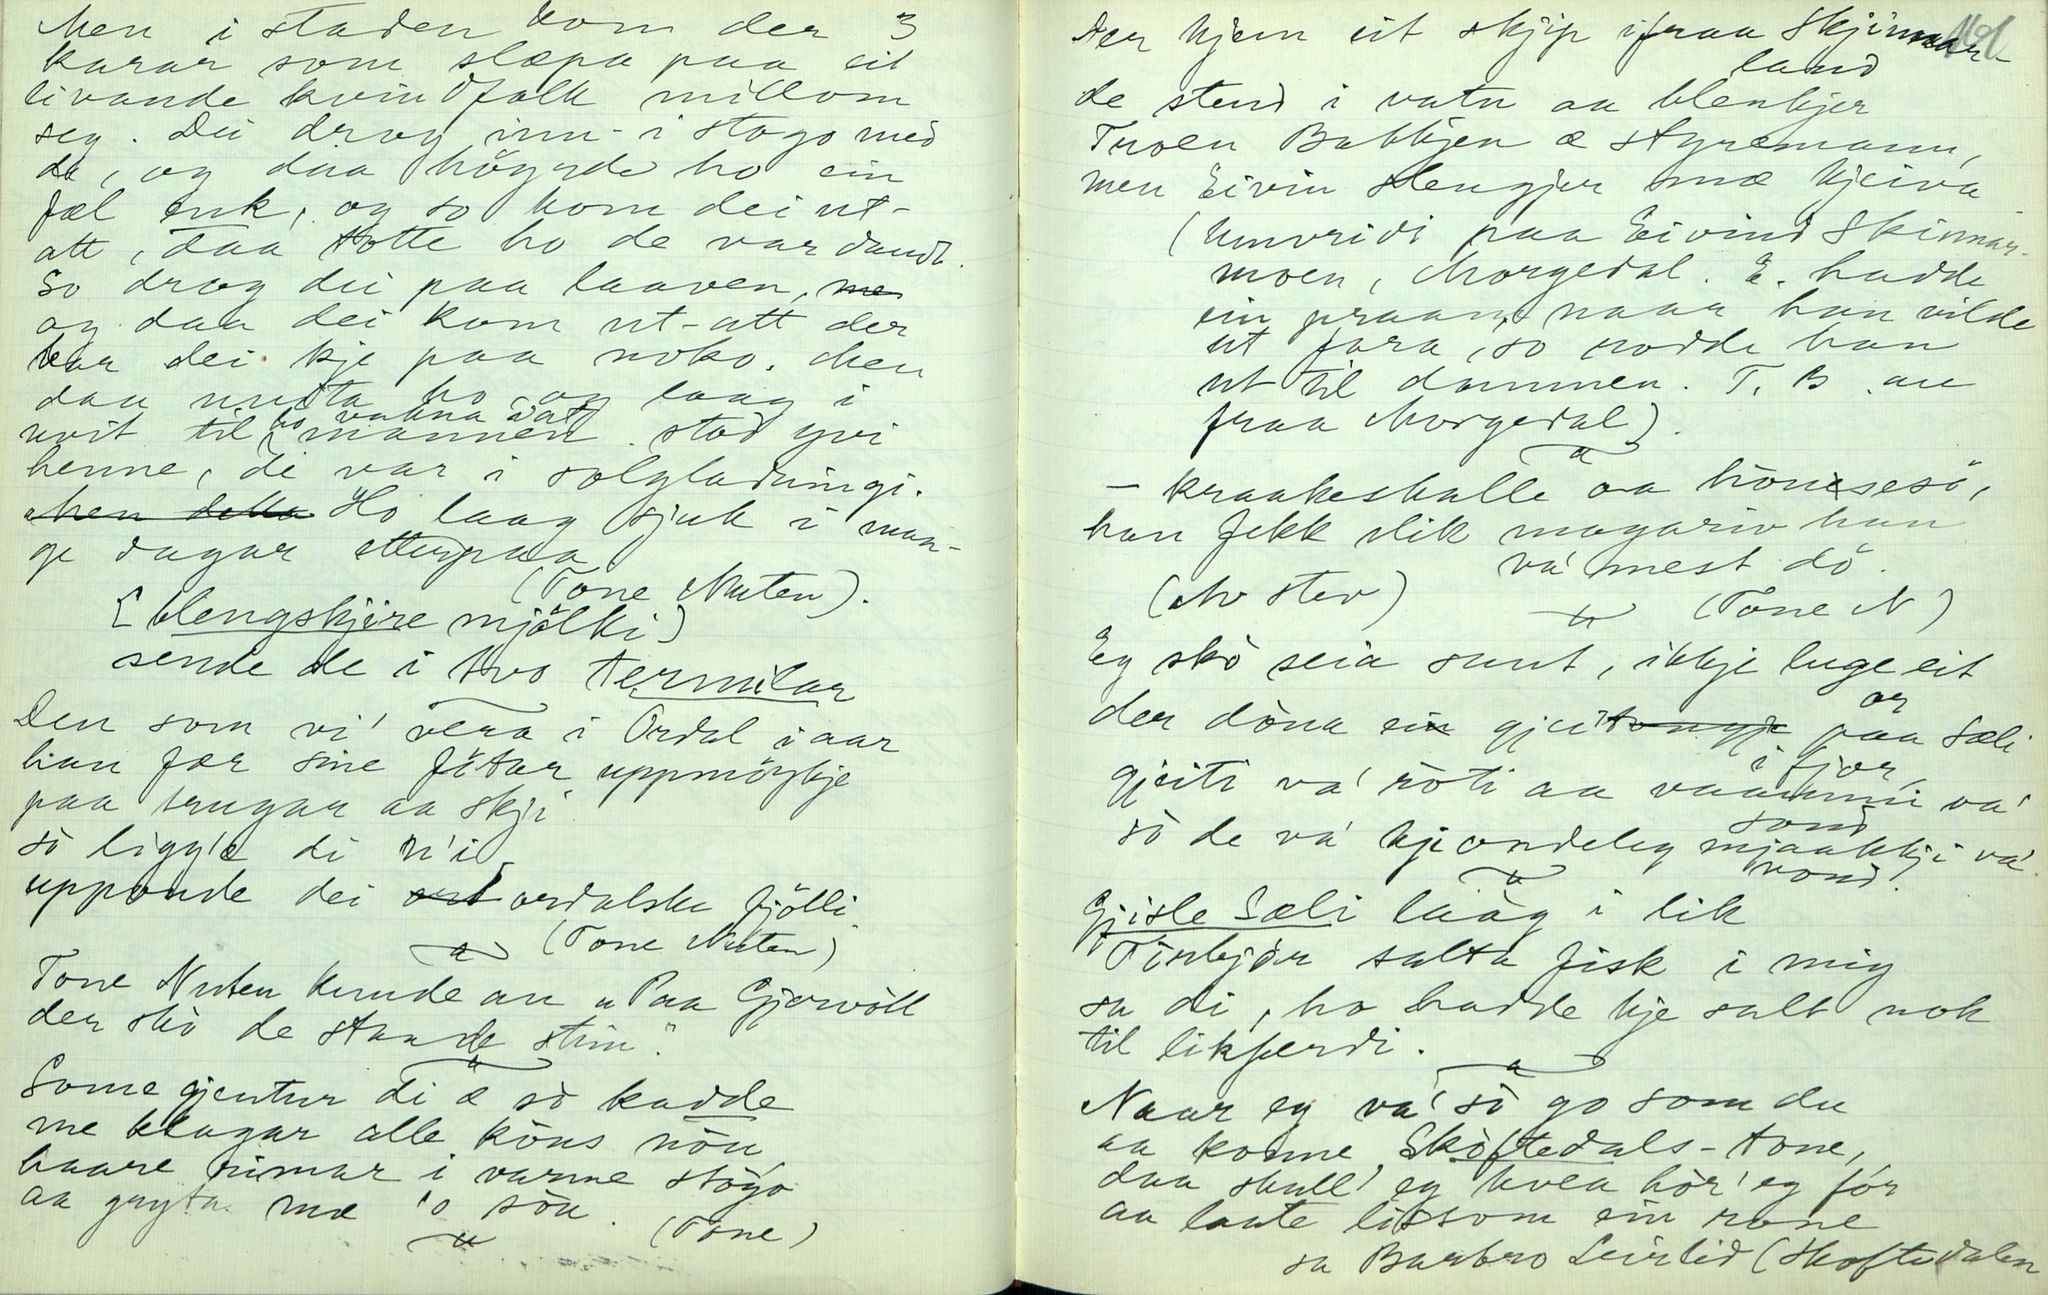 Men i staden kom der 3
karar som slæpa paa eit
livande kvindfolk millom
seg. Dei drog inn-i stogo med
de, og daa høgrde ho ein
fæl enk, og so kom dei ut-
att, daa totte ho de var daudt.
So drog dei paa laaven, me
og daa dei kom ut-att der
bar dei kje paa noko. Men
daa ho og laag i
uvit til ho vakna daa mannen stod yvi
henne, de var i solgladsingi.
Men detta Ho laag sjuk i man-
ge dagar etterpaa
(Tone Nuten).
[blengskjire mjölki]
sende de i tvo termilar
Den som vi' vera i Ordal i aar
han fær sine fötar uppmöykje
paa trugar aa skji
so ligg'e di n'i
upponde dei ordalske fjölli
(Tone Nuten)
Tone Nuten kunde au "Paa Gjervoll
der sko de staande stein".
Some gjentur di æ so kadde
me klagar alle köns nön
haare rimar i varme stogo
aa gryta mæ 'o sön. (Tone)
161.
Der kjem eit skjip ifraa Skjinnar-
land
de stend i vatn aa blenkjer
Troen Bakkjen æ styremann,
men Eivin slengjer mæ kjeiva
(Umvridi paa Eivind Skinnar-
moen, Morgedal. E. hadde
ein praam, naar han vilde
ut fara, so rodde han
ut til dammen. T. B. au
fraa Morgedal).
- kraakeskalle aa hönsesö,
han fekk slik magariv han
va' mest dö.
(Av stev) (Tone N)
Eg skò seia sant, ikkje luge eit or
der döna ein gjeitongje paa Sæli
i fjor,
gjeiti va' röti aa vaammi va' sond
sò de va' kjendeleg mjaakkji va'
vond!
Gjisle Sæli laag i lik
Tinbjör salta fisk i mig
sa di, ho hadde kje salt nok
til likferdi.
Naar eg va' so go som du
aa konne Sköftedals-tone,
daa skull' eg kvea hör' eg för
aa laate lissom ein rone
sa Barbro Leirlid (Skoftedalen